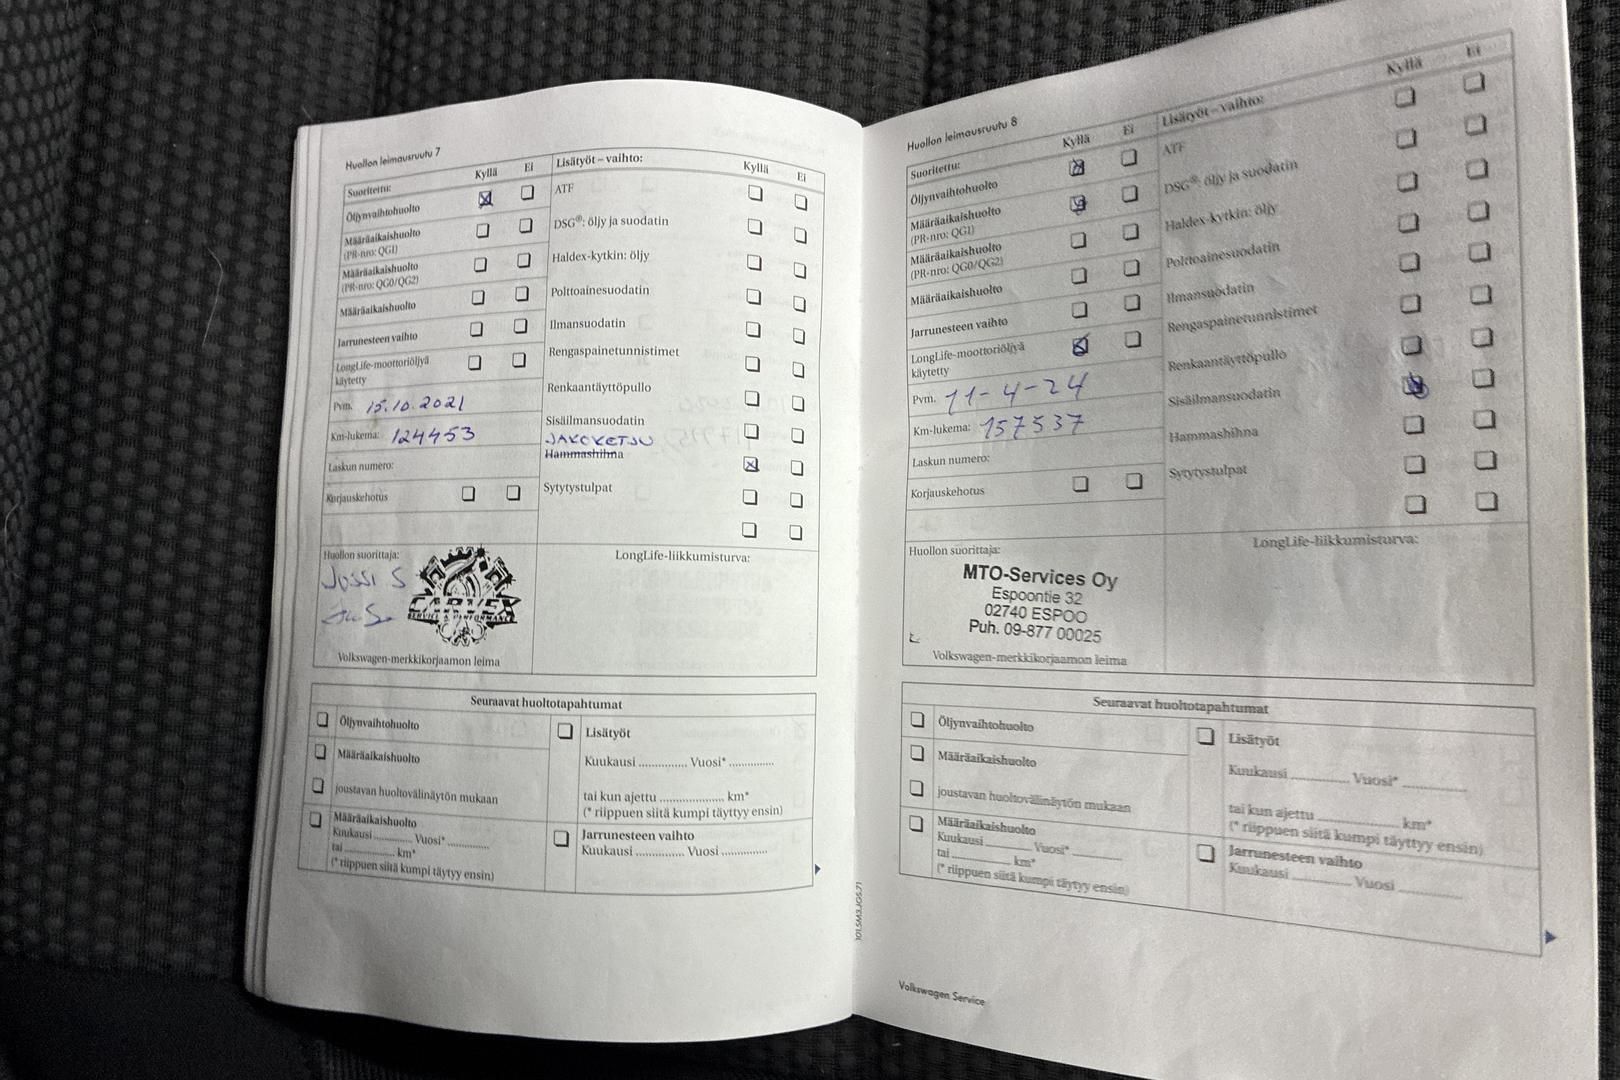 Huollon leimausruutu 7
Suoritettu: Kyllä Ei
Öljynvaihtohuolto
Määräaikaishuolto
(PR-nro: QG1)
Määräaikaishuolto
(PR-nro: QG0/QG2)
Määräaikaishuolto
Jarrunesteen vaihto
LongLife-moottoriöljyä
käytetty
Pvm. 15.10.2021
Km-lukema: 124453
Laskun numero:
Korjauskehotus
Lisätyöt – vaihto: Kyllä Ei
ATF
DSG®: öljy ja suodatin
Haldex-kytkin: öljy
Polttoainesuodatin
Ilmansuodatin
Rengaspainetunnistimet
Renkaantäyttöpullo
Sisäilmansuodatin
JAKOKETJU
Hammashihna
Sytytystulpat
Huollon suorittaja:
Jussi S
CARVEX
SERVICE & PERFORMANCE
Volkswagen-merkkikorjaamon leima
LongLife-liikkumisturva:
Seuraavat huoltotapahtumat
Öljynvaihtohuolto
Määräaikaishuolto
joustavan huoltovälinäytön mukaan
Määräaikaishuolto
Kuukausi ............ Vuosi* .............
tai ................ km*
(* riippuen siitä kumpi täytyy ensin)
Lisätyöt
Kuukausi ............... Vuosi* ..............
tai kun ajettu .................... km*
(* riippuen siitä kumpi täyttyy ensin)
Jarrunesteen vaihto
Kuukausi ............... Vuosi ..............
101.5M3.JGS.71
Huollon leimausruutu 8
Suoritettu: Kyllä Ei
Öljynvaihtohuolto
Määräaikaishuolto
(PR-nro: QG1)
Määräaikaishuolto
(PR-nro: QG0/QG2)
Määräaikaishuolto
Jarrunesteen vaihto
LongLife-moottoriöljyä
käytetty
Pvm. 11-4-24
Km-lukema: 157537
Laskun numero:
Korjauskehotus
Lisätyöt – vaihto: Kyllä Ei
ATF
DSG®: öljy ja suodatin
Haldex-kytkin: öljy
Polttoainesuodatin
Ilmansuodatin
Rengaspainetunnistimet
Renkaantäyttöpullo
Sisäilmansuodatin
Hammashihna
Sytytystulpat
Huollon suorittaja:
MTO-Services Oy
Espoontie 32
02740 ESPOO
Puh. 09-877 00025
Volkswagen-merkkikorjaamon leima
LongLife-liikkumisturva:
Seuraavat huoltotapahtumat
Öljynvaihtohuolto
Määräaikaishuolto
joustavan huoltovälinäytön mukaan
Määräaikaishuolto
Kuukausi ............ Vuosi* .............
tai ................ km*
(* riippuen siitä kumpi täytyy ensin)
Lisätyöt
Kuukausi ............... Vuosi* ..............
tai kun ajettu .................... km*
(* riippuen siitä kumpi täyttyy ensin)
Jarrunesteen vaihto
Kuukausi ............... Vuosi ..............
Volkswagen Service